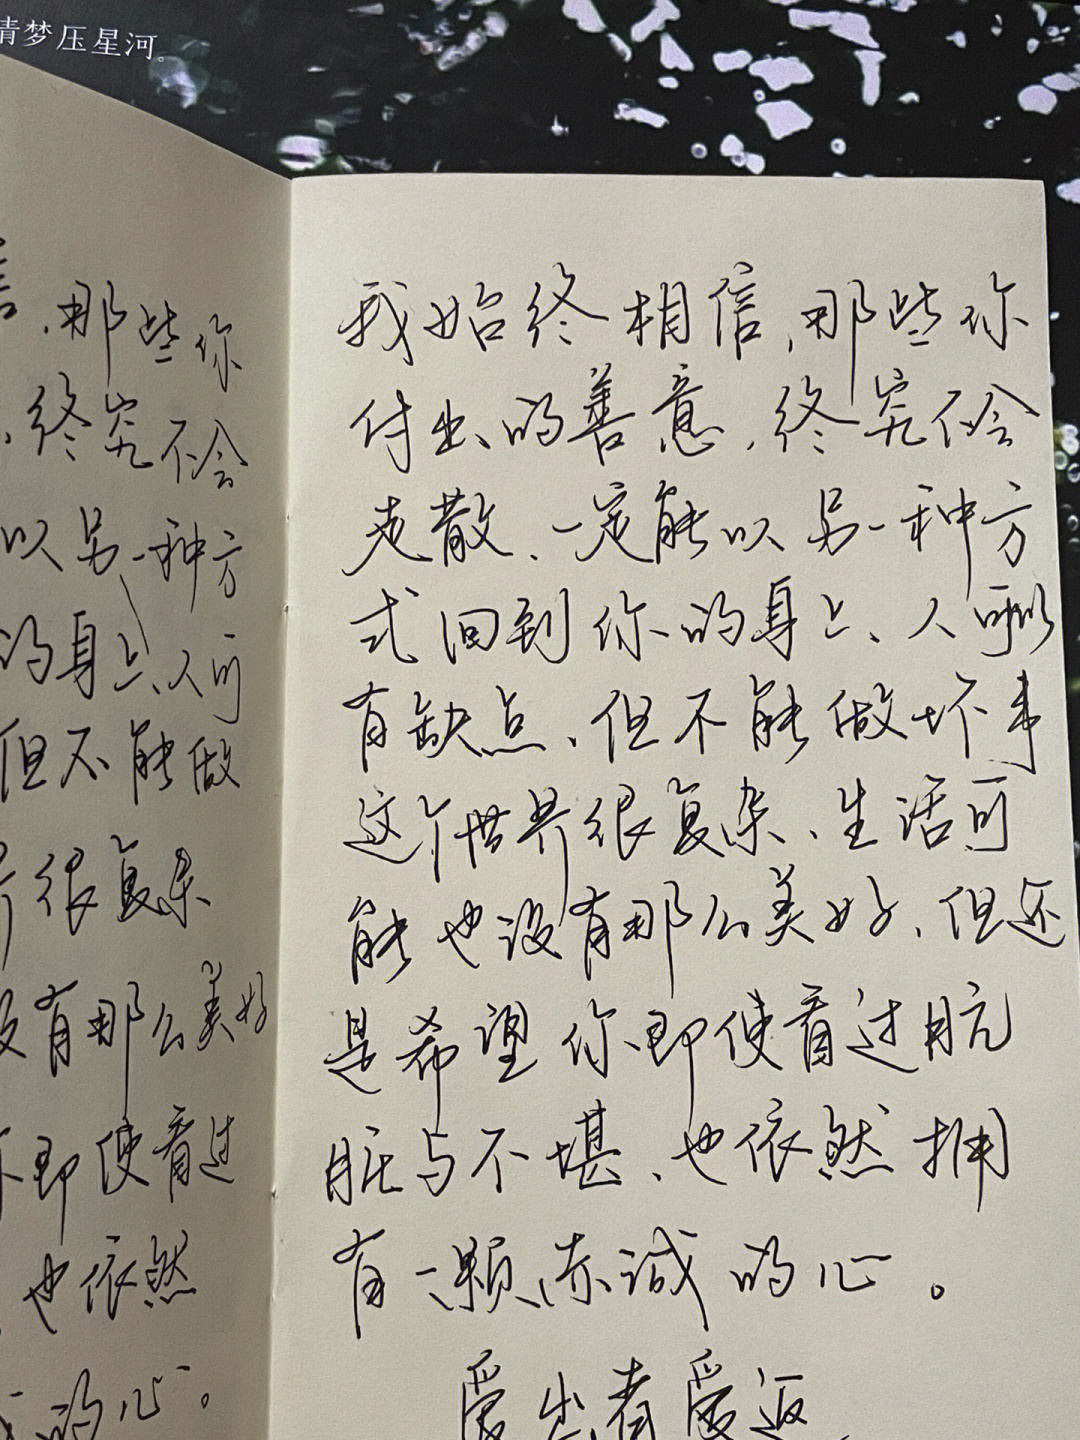 清梦压星河。
信，那些你
，终究不会
以另一种方
的身上、人可
但不能做
界很复杂
没有那么美好
你即使看过
，也依然
诚的心。
我始终相信，那些你
付出的善意，终究不会
走散、一定能以另一种方
式回到你的身上、人可以
有缺点、但不能做坏事
这个世界很复杂、生活可
能也没有那么美好、但还
是希望你即使看过肮
脏与不堪、也依然拥
有一颗赤诚的心。
爱出者爱返